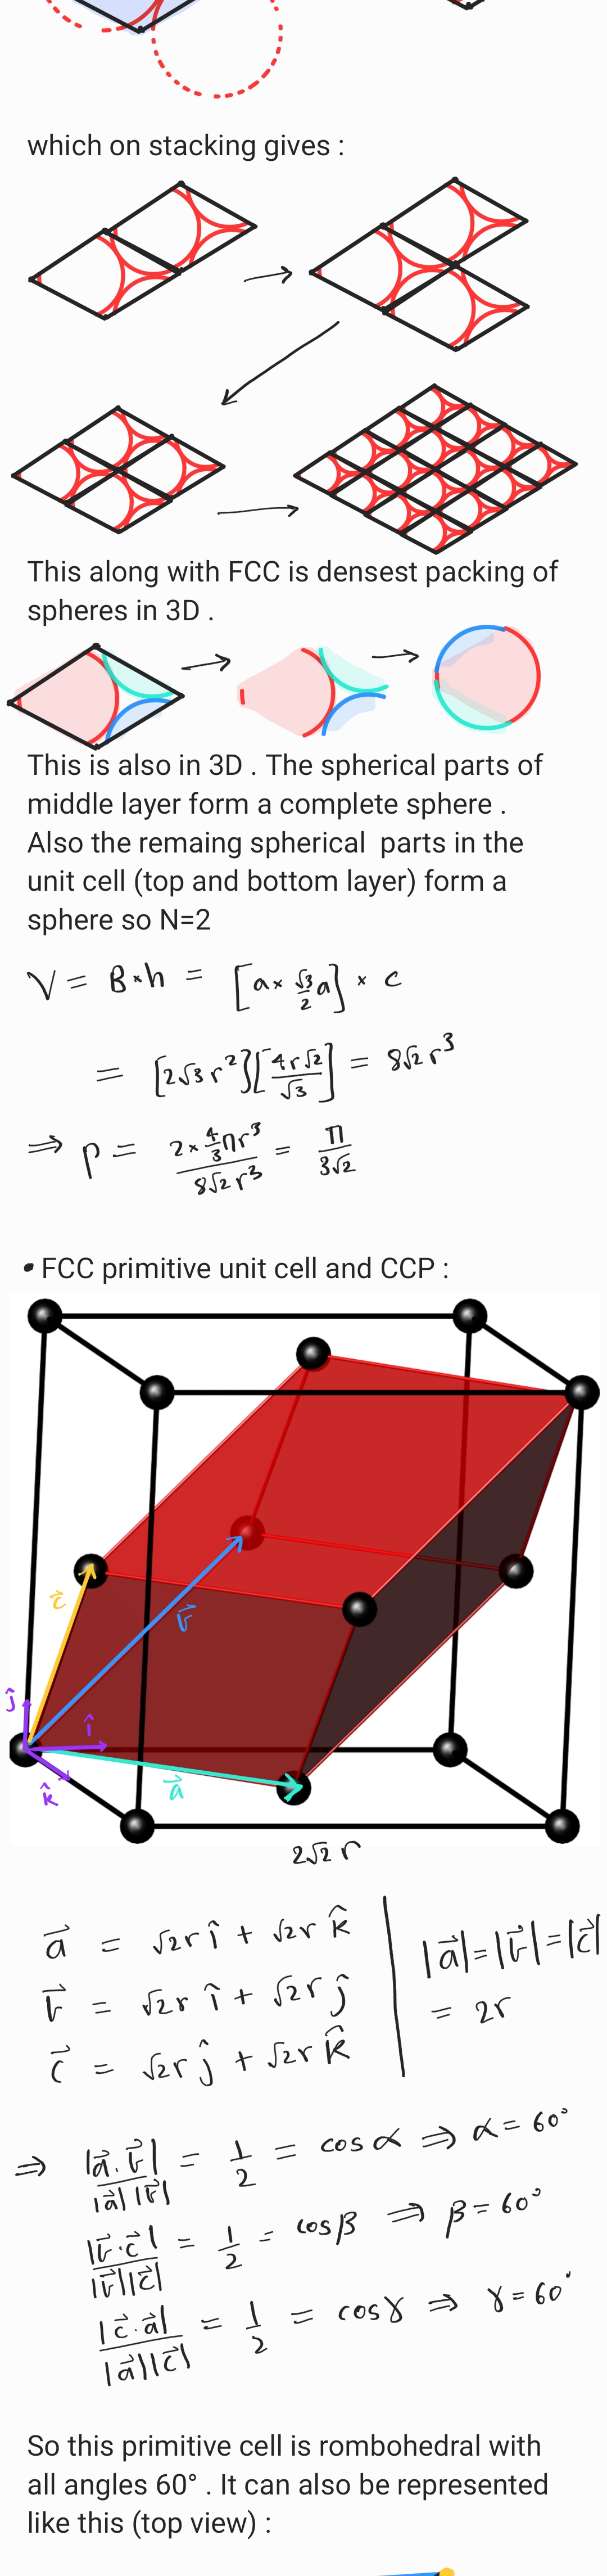 which on stacking gives :
This along with FCC is densest packing of
spheres in 3D .
This is also in 3D . The spherical parts of
middle layer form a complete sphere .
Also the remaing spherical parts in the
unit cell (top and bottom layer) form a
sphere so N=2
V = B×h = [a × √3/2 a] × c
= [2√3 r²][4r√2/√3] = 8√2 r³
⇒ p = 2 × 4/3 πr³ / 8√2 r³ = π / 3√2
• FCC primitive unit cell and CCP :
c⃗
b⃗
ĵ
î
k̂
a⃗
2√2 r
a⃗ = √2r î + √2r k̂
b⃗ = √2r î + √2r ĵ
c⃗ = √2r ĵ + √2r k̂
|a⃗| = |b⃗| = |c⃗|
= 2r
⇒ |a⃗.b⃗| / |a⃗| |b⃗| = 1/2 = cos α ⇒ α = 60°
|b⃗.c⃗| / |b⃗||c⃗| = 1/2 = cos β ⇒ β = 60°
|c⃗.a⃗| / |a⃗||c⃗| = 1/2 = cos γ ⇒ γ = 60°
So this primitive cell is rombohedral with
all angles 60° . It can also be represented
like this (top view) :